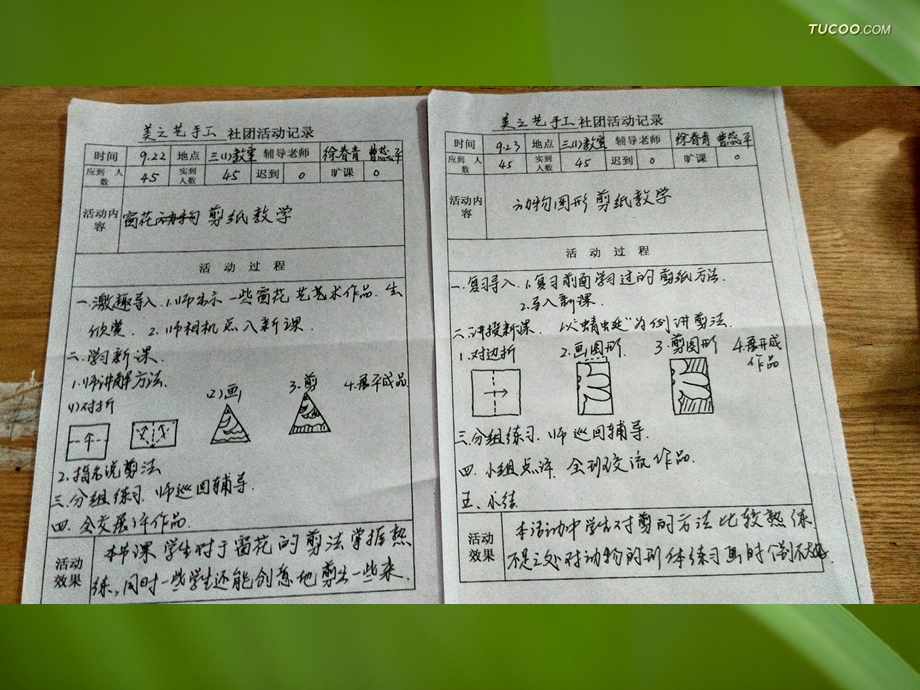 TUCOO.COM
美之艺手工 社团活动记录
时间 9.22 地点 三(1)教室 辅导老师 徐春青 曹蕊平
应到人数 45 实到人数 45 迟到 0 旷课 0
活动内容 窗花 剪纸教学
活动过程
一.激趣导入 1.师出示一些窗花艺术作品.生
欣赏. 2.师相机点入新课.
二.学习新课.
1.师讲解方法.
(1)对折 (2)画 3.剪 4.展开成品
2.指名说剪法
三.分组练习.师巡回辅导.
四.全交展评作品.
活动效果 本节课学生对于窗花的剪法掌握熟
练,同时一些学生还能创意地剪出一些来.
美之艺手工 社团活动记录
时间 9.23 地点 三(1)教室 辅导老师 徐春青 曹蕊平
应到人数 45 实到人数 45 迟到 0 旷课 0
活动内容 动物图形剪纸教学
活动过程
一.复习导入 1.复习前面学习过的剪纸方法.
2.导入新课.
二.讲授新课. 以"蜻蜓"为例讲剪法.
1.对边折 2.画图形 3.剪图形 4.展开成作品
三.分组练习.师巡回辅导.
四.小组点评.全班交流作品.
五、小结
活动效果 本活动中学生对剪的方法比较熟练
不足之处对动物的形体练习画时